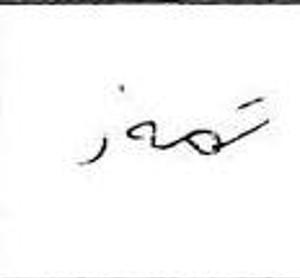 تموز